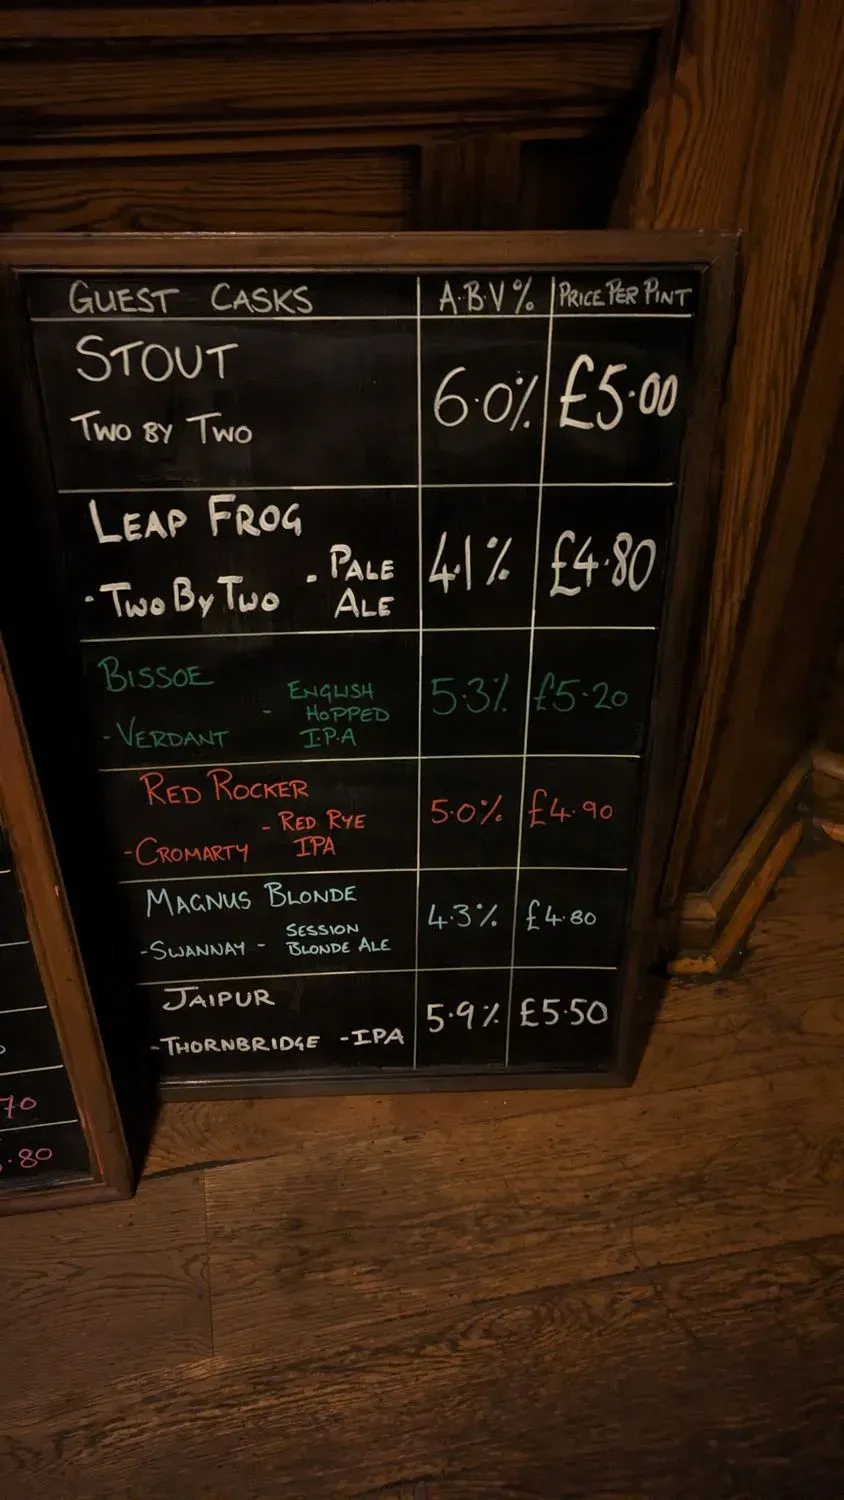 GUEST CASKS A.B.V% PRICE PER PINT
STOUT
TWO BY TWO
6.0% £5.00
LEAP FROG
- TWO BY TWO - PALE ALE
4.1% £4.80
BISSOE
- VERDANT - ENGLISH HOPPED I.P.A
5.3% £5.20
RED ROCKER
- CROMARTY - RED RYE IPA
5.0% £4.90
MAGNUS BLONDE
- SWANNAY - SESSION BLONDE ALE
4.3% £4.80
JAIPUR
- THORNBRIDGE - IPA
5.9% £5.50
70
.80